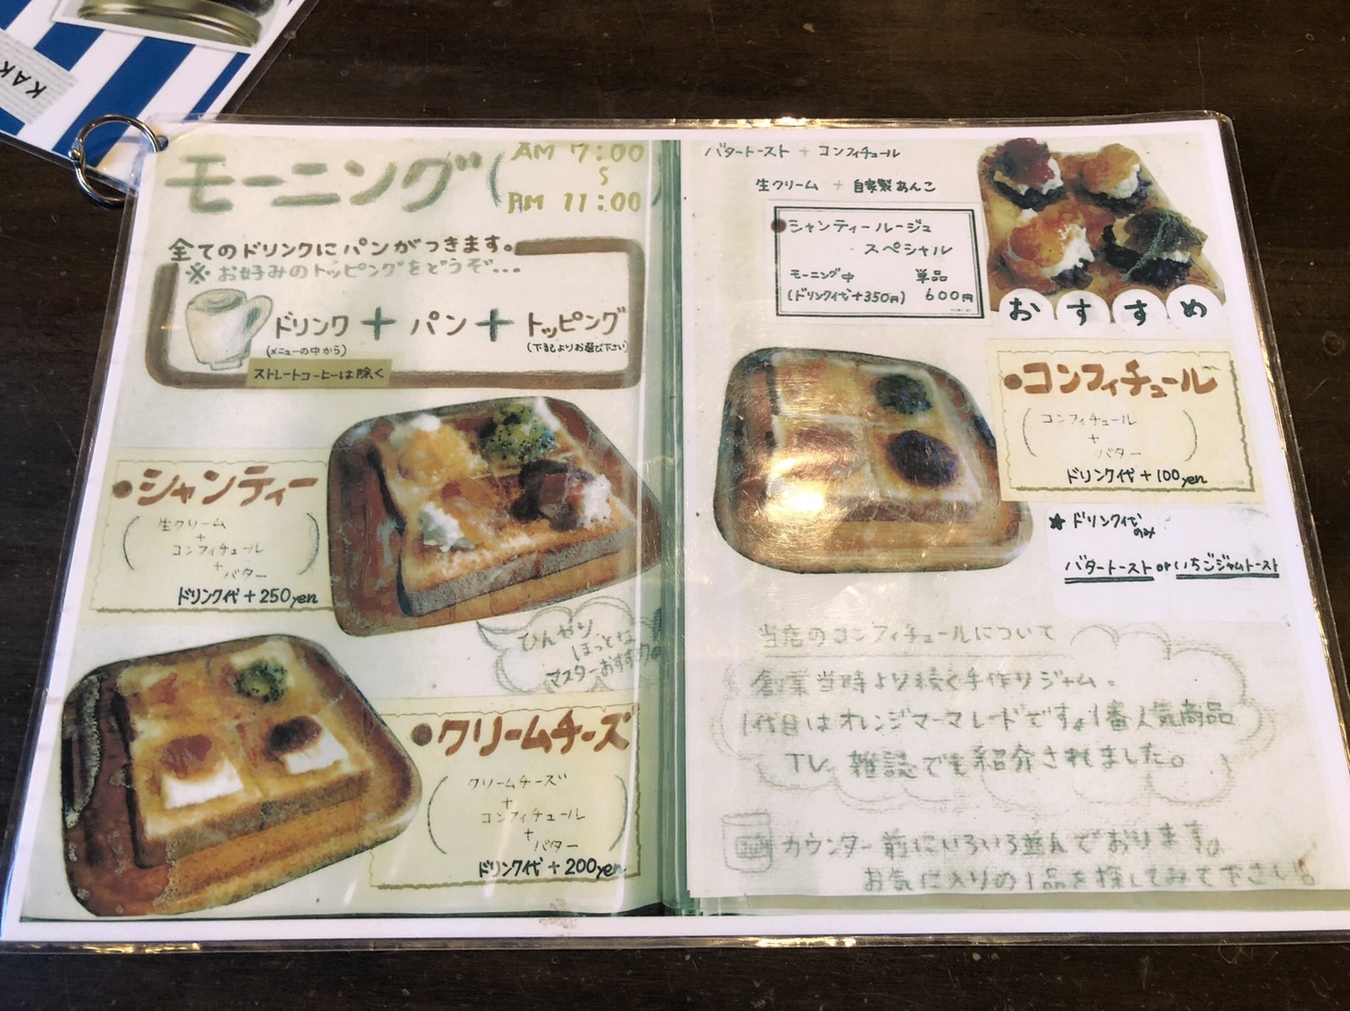 KAK
モーニング
(AM 7:00
〜
AM 11:00)
全てのドリンクにパンがつきます。
※お好みのトッピングをどうぞ...
ドリンク + パン + トッピング
(メニューの中から)
(下記よりお選び下さい)
ストレートコーヒーは除く
●シャンティー
(生クリーム
+
コンフィチュール
+
バター)
ドリンク代+250yen
ひんやり
ほっとな
マスターおすすめ
●クリームチーズ
(クリームチーズ
+
コンフィチュール
+
バター)
ドリンク代+200yen
バタートースト + コンフィチュール
生クリーム + 自家製あんこ
●シャンティールージュ
スペシャル
モーニング中 単品
(ドリンク代+350円) 600円
おすすめ
●コンフィチュール
(コンフィチュール
+
バター)
ドリンク代+100yen
★ドリンク代
のみ
バタートースト or いちごジャムトースト
当店のコンフィチュールについて
創業当時より続く手作りジャム。
1代目はオレンジマーマレードです。1番人気商品
TV、雑誌でも紹介されました。
カウンター前にいろいろ並んでおります。
お気に入りの1品を探してみて下さい。